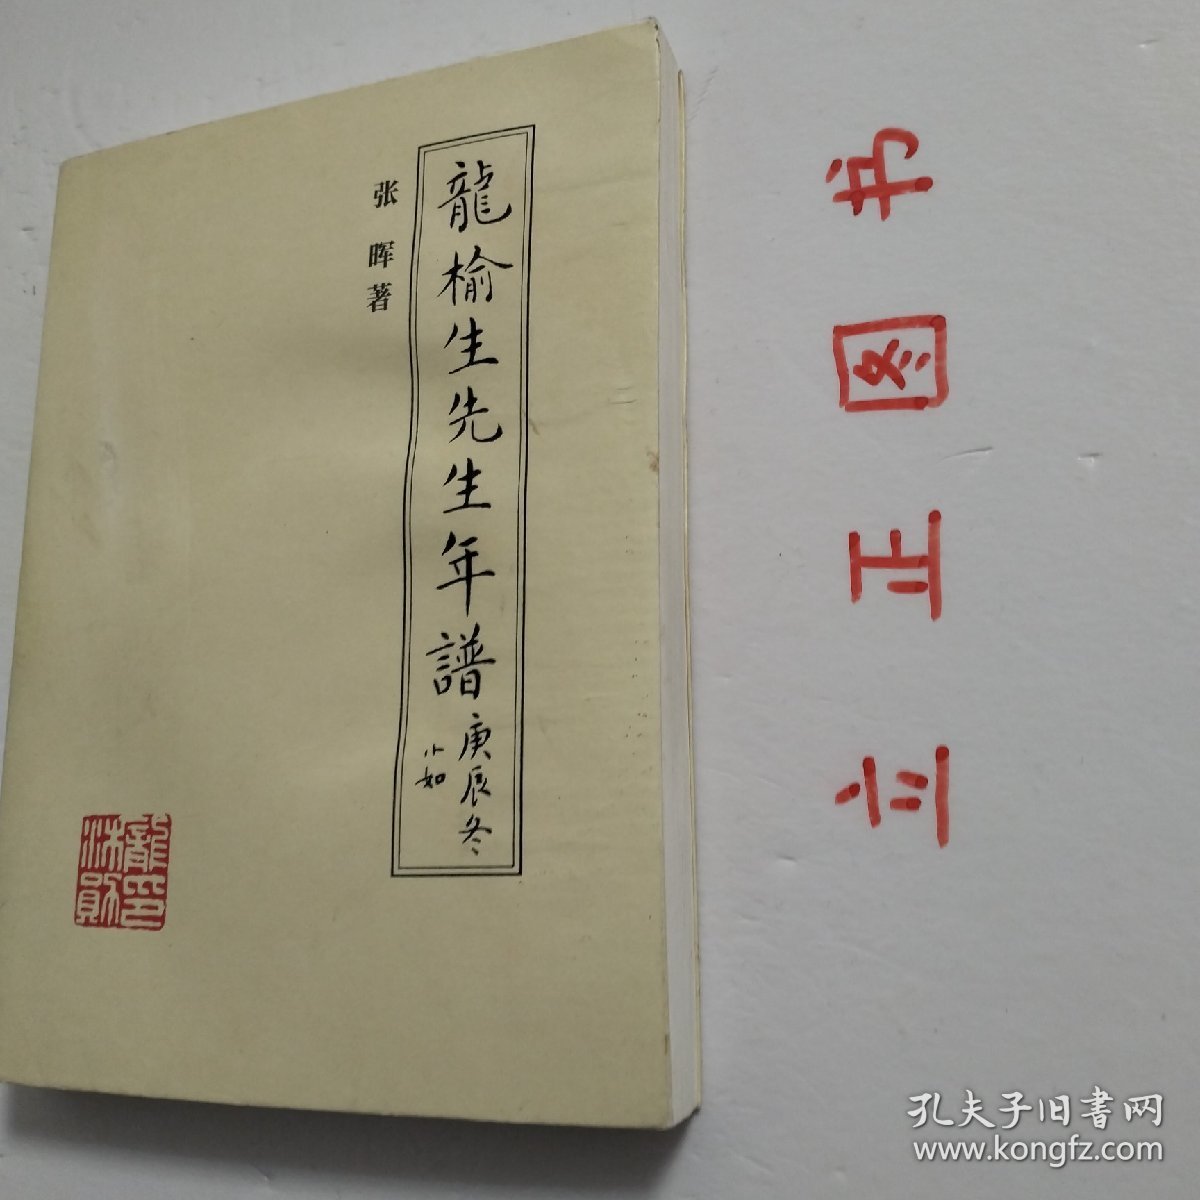 龍榆生先生年譜
庚辰冬
小如
张晖著
龍印
沐勛
立正图书
孔夫子旧書网
www.kongfz.com